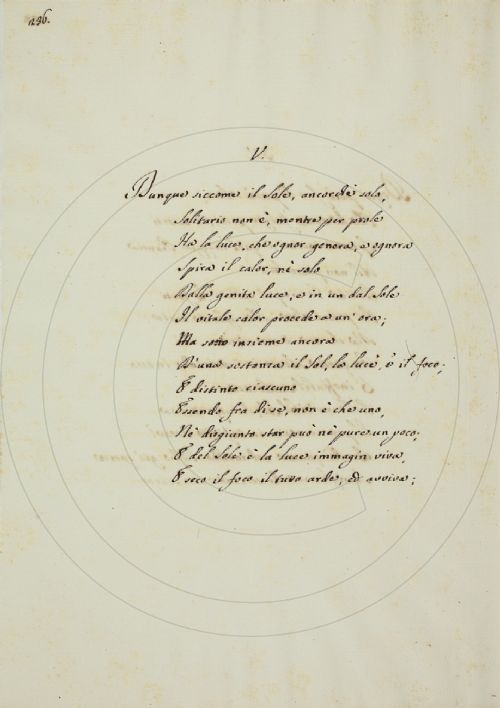 296.
V.
Dunque siccome il Sole, ancorchè solo,
Solitario non è, mentre per prole
Ha la luce, che ognor genera, e ognora
Spira il calor, nè solo
Dalla genita luce, e in un dal Sole
Il vitale calor procede a un' ora;
Ma sono insieme ancora
D' una sostanza il Sol, la luce, e il foco;
E distinto ciascuno
Essendo fra di se, non è che uno,
Nè disgiunto star può nè pure un poco;
E del Sole è la luce immagin viva,
E seco il foco il tutto arde, ed avviva;